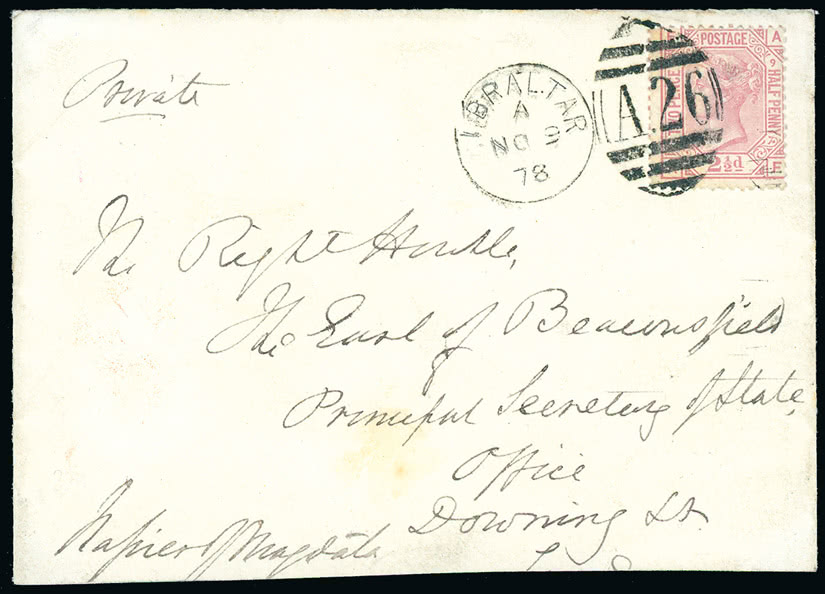 Private
GIBRALTAR
A
NO 9
78
A26
POSTAGE
A
9
TWO PENCE
HALF PENNY
2½d
E
The Right Honble,
The Earl of Beaconsfield
Principal Secretary of State,
Office
Downing St
Napier of Magdala